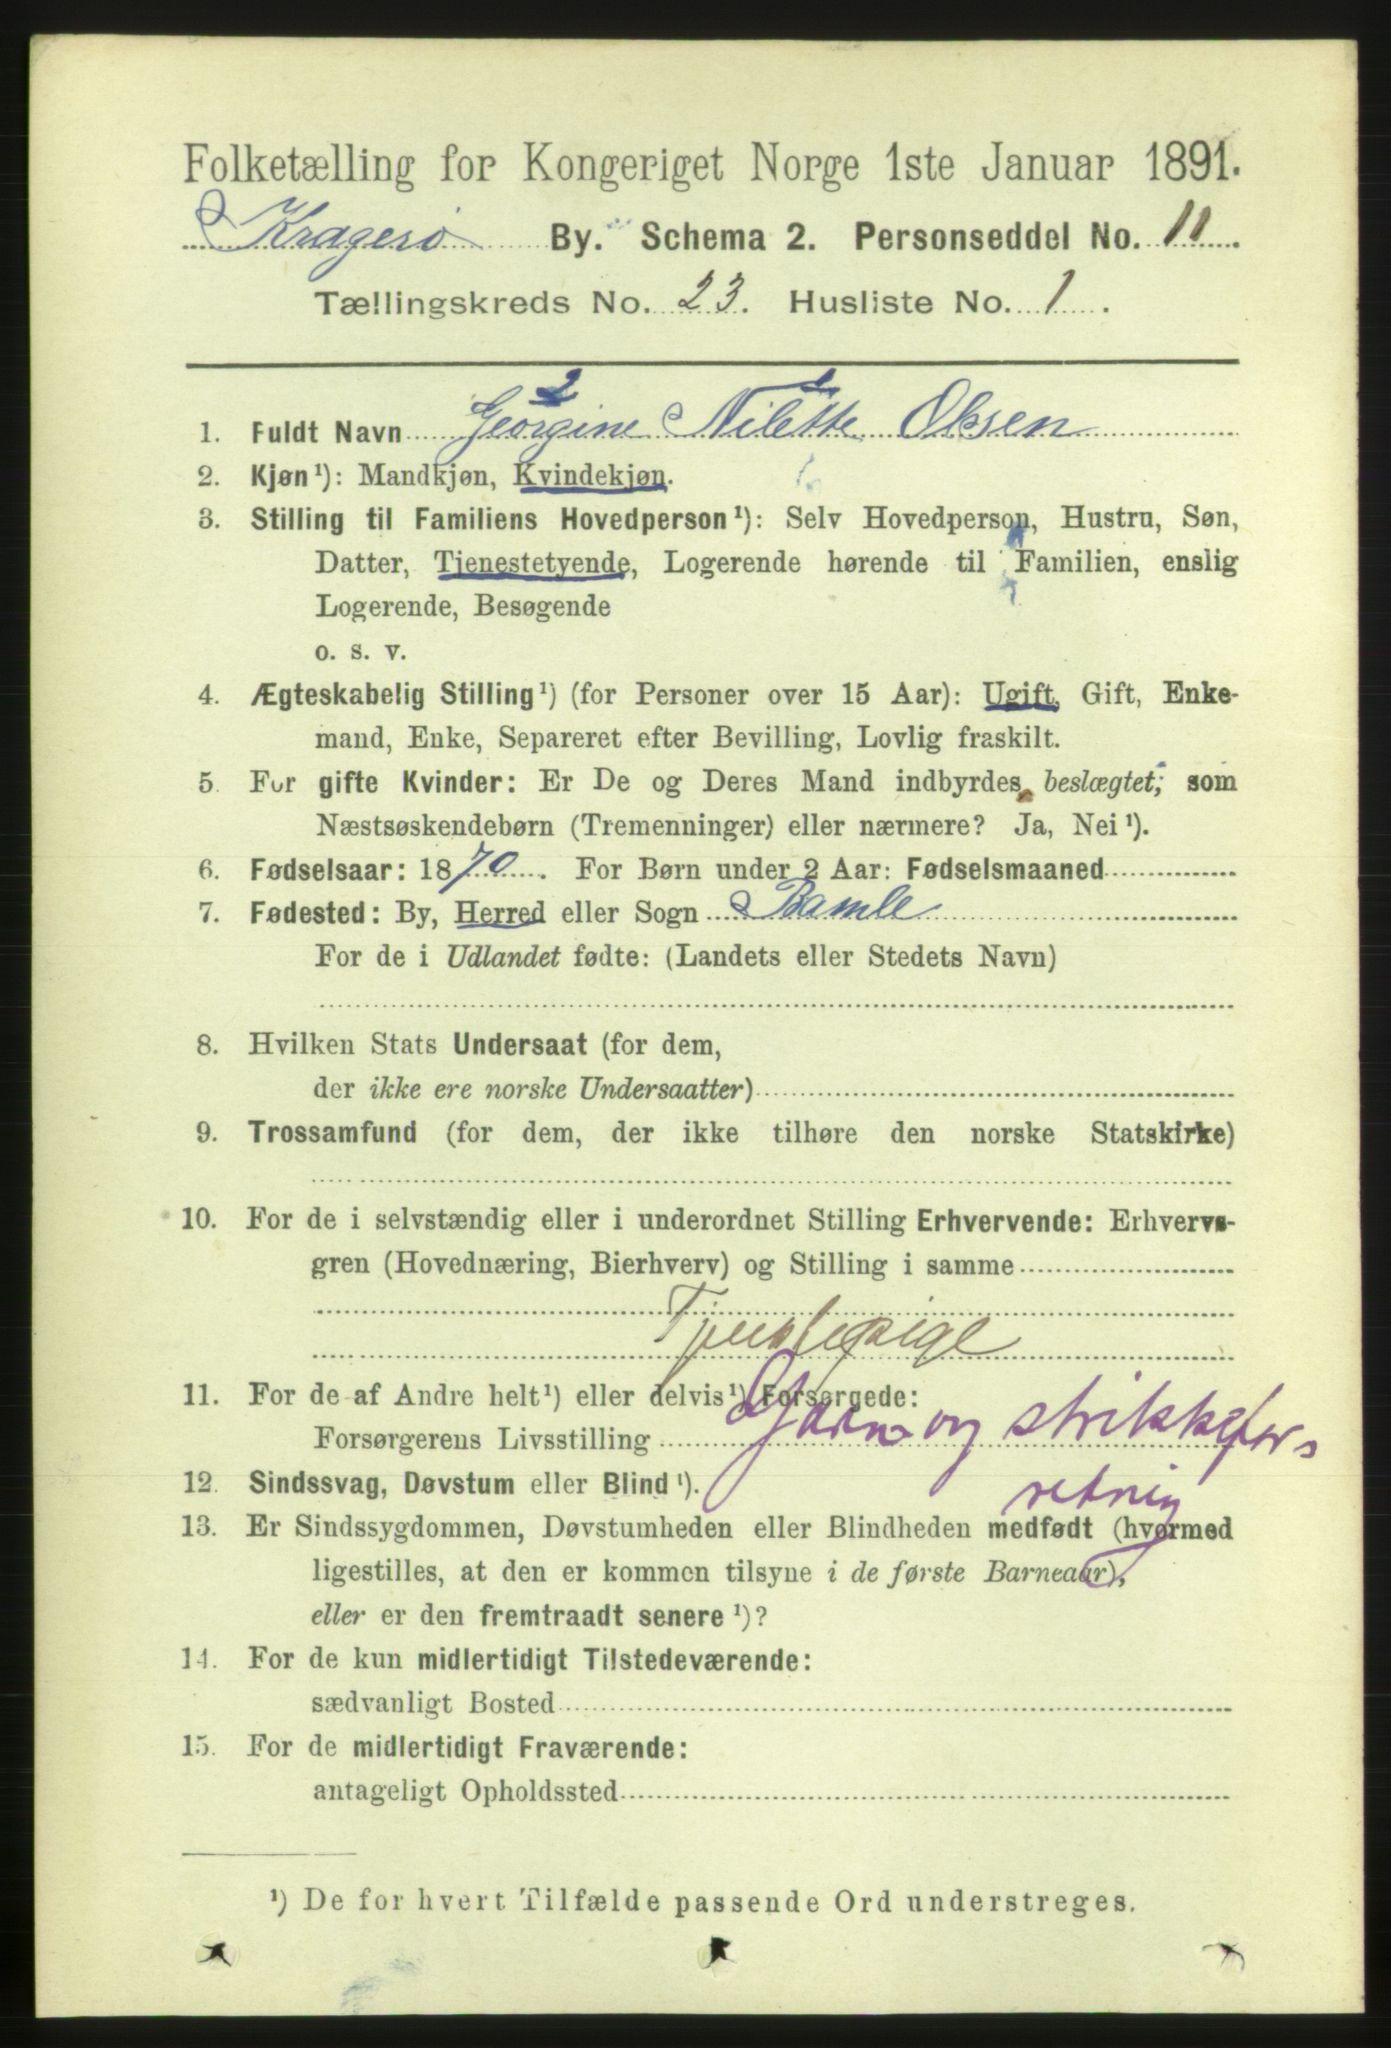 Folketælling for Kongeriget Norge 1ste Januar 1891.
Kragerø By. Schema 2. Personseddel No. 11.
Tællingskreds No. 23. Husliste No. 1.
2
1. Fuldt Navn Georgine Nilette Olsen
2. Kjøn¹): Mandkjøn, Kvindekjøn.
3. Stilling til Familiens Hovedperson¹): Selv Hovedperson, Hustru, Søn,
Datter, Tjenestetyende, Logerende hørende til Familien, enslig
Logerende, Besøgende
o. s. v.
4. Ægteskabelig Stilling¹) (for Personer over 15 Aar): Ugift, Gift, Enke-
mand, Enke, Separeret efter Bevilling, Lovlig fraskilt.
5. For gifte Kvinder: Er De og Deres Mand indbyrdes beslægtet, som
Næstsøskendebørn (Tremenninger) eller nærmere? Ja, Nei¹).
6. Fødselsaar: 1870. For Børn under 2 Aar: Fødselsmaaned
7. Fødested: By, Herred eller Sogn Bamle
For de i Udlandet fødte: (Landets eller Stedets Navn)
8. Hvilken Stats Undersaat (for dem,
der ikke ere norske Undersaatter)
9. Trossamfund (for dem, der ikke tilhøre den norske Statskirke)
10. For de i selvstændig eller i underordnet Stilling Erhvervende: Erhvervs-
gren (Hovednæring, Bierhverv) og Stilling i samme
Tjenstepige
11. For de af Andre helt¹) eller delvis¹) Forsørgede:
Forsørgerens Livsstilling Garn og strikkefor-
12. Sindssvag, Døvstum eller Blind¹). retning
13. Er Sindssygdommen, Døvstumheden eller Blindheden medfødt (hvormed
ligestilles, at den er kommen tilsyne i de første Barneaar),
eller er den fremtraadt senere¹)?
14. For de kun midlertidigt Tilstedeværende:
sædvanligt Bosted
15. For de midlertidigt Fraværende:
antageligt Opholdssted
¹) De for hvert Tilfælde passende Ord understreges.